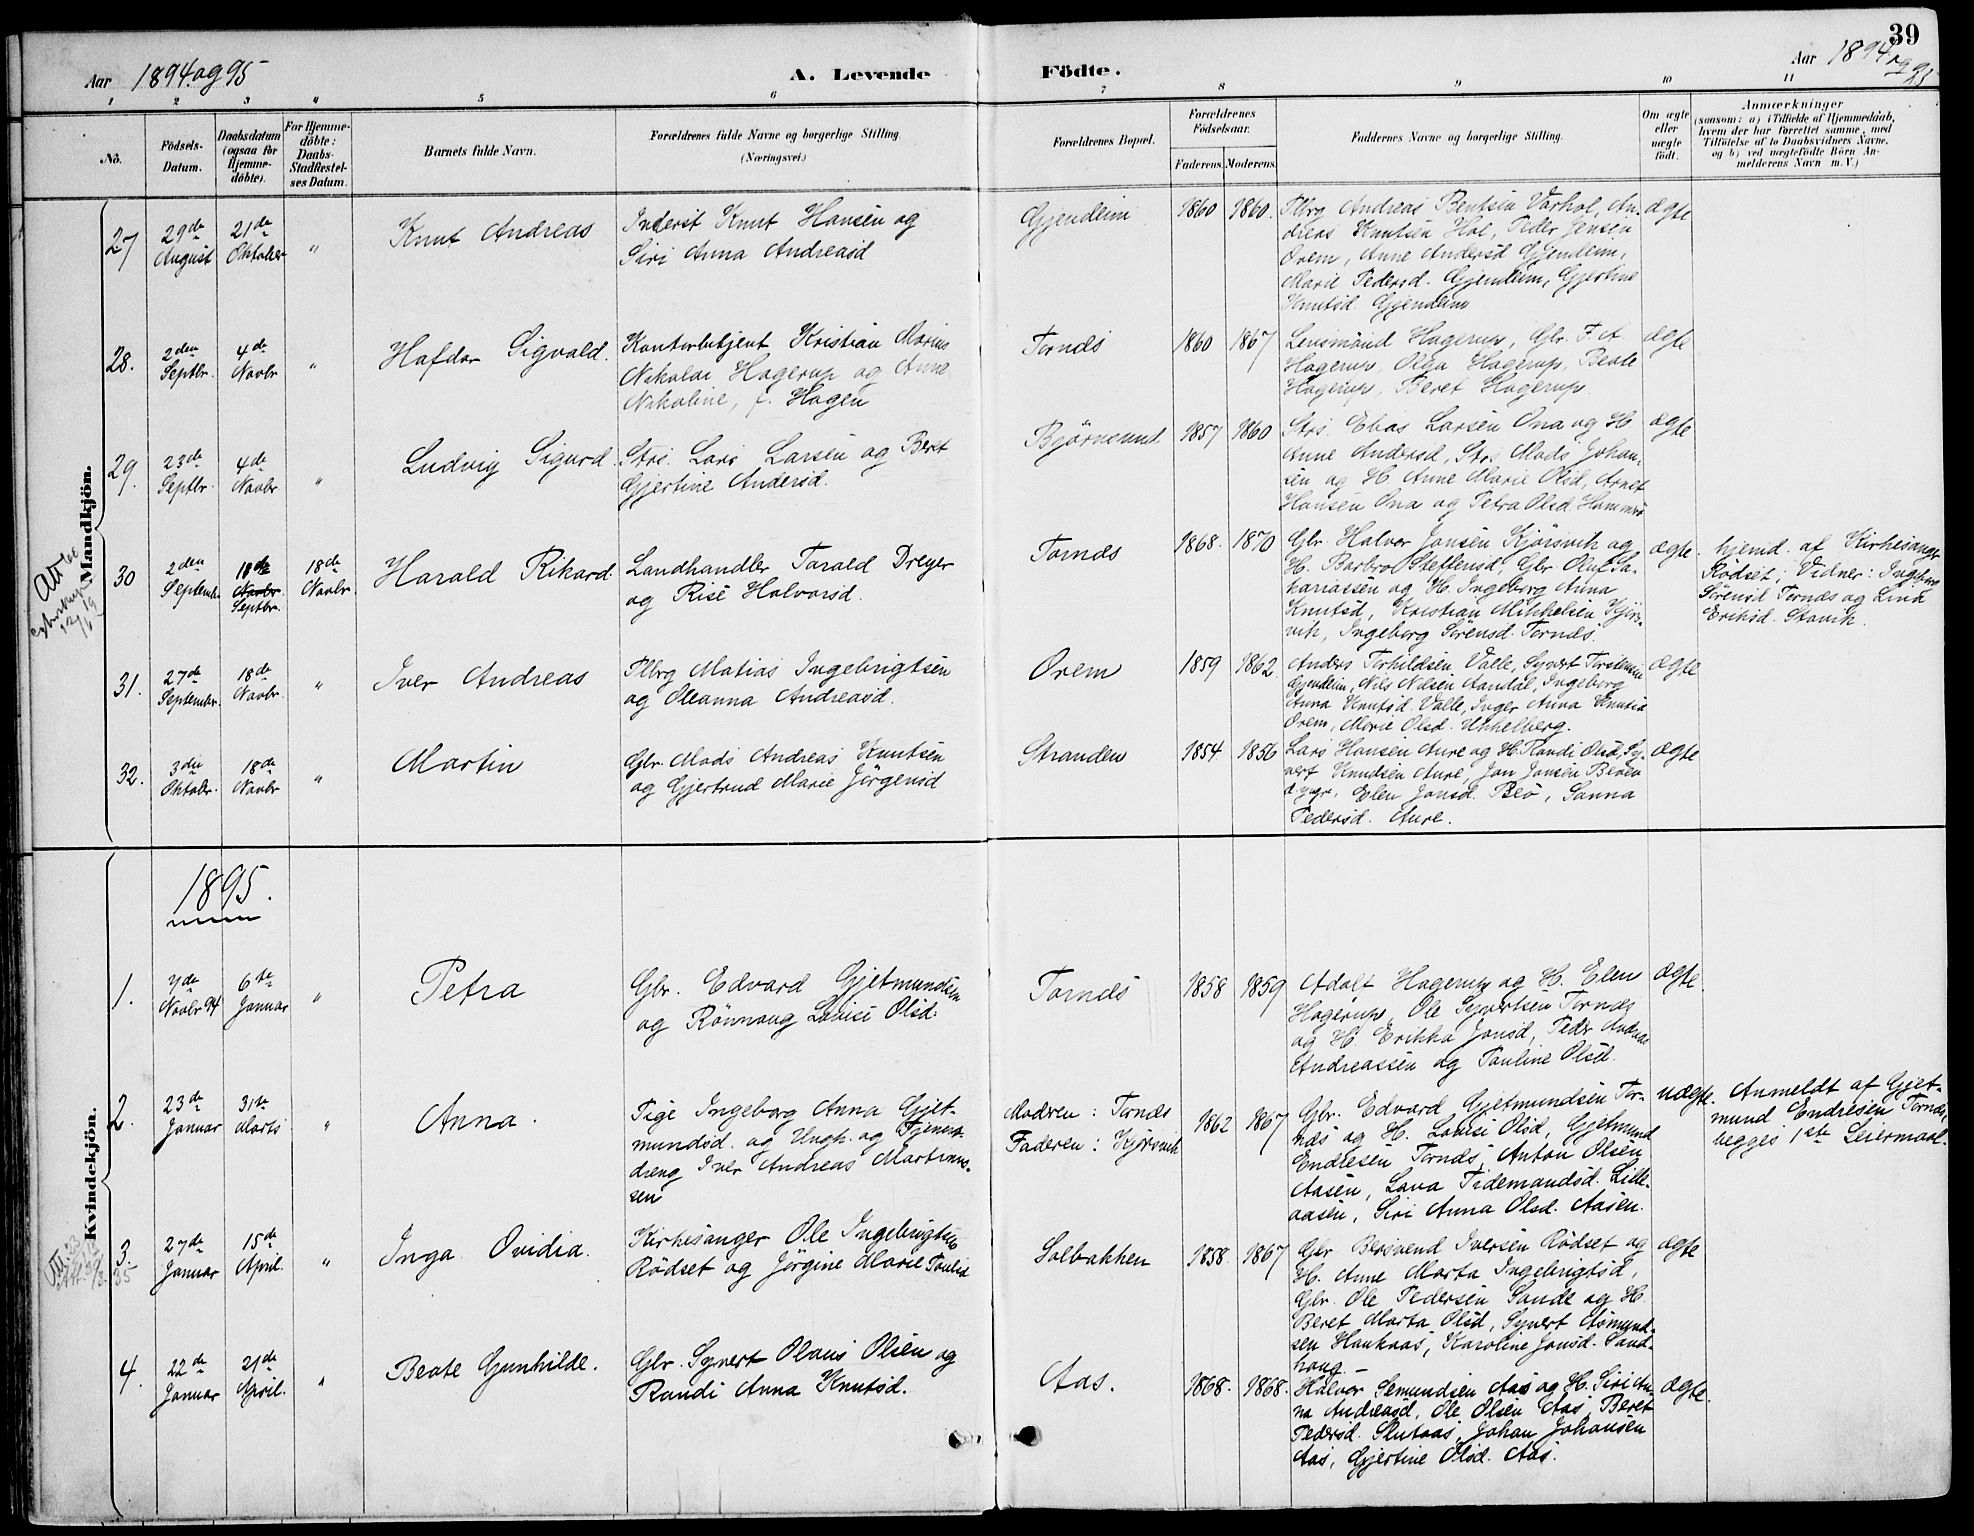 39
Aar 1894 og 95
A. Levende Födte.
Aar 1894 og 95
1 2 3 4 5 6 7 8 9 10 11
No.
Födsels-
Datum.
Daabsdatum
(ogsaa for
Hjemme-
döbte).
For Hjemme-
döbte:
Daabs-
Stadfæstel-
ses Datum.
Barnets fulde Navn.
Forældrenes fulde Navne og borgerlige Stilling
(Næringsvei.)
Forældrenes Bopæl.
Forældrenes
Födselsaar.
Faderens. Moderens.
Faddernes Navne og borgerlige Stilling.
Om ægte
eller
uægte
födt.
Anmærkninger
(saasom: a) i Tilfælde af Hjemmedaab,
hvem der har forrettet samme, med
Tilföielse af to Daabsvidners Navne,
og b) ved uægtefödte Börn An-
melderens Navn m. V.)
Mandkjön.
27
29de
August
21de
Oktober
"
Knut Andreas
Inderst Knut Hansen og
Siri Anna Andreasd
Gjendeim
1860 1860.
Flbrg Andreas Bentsen Varhol, An-
dreas Knutsen Hol, Peder Jensen
Orem, Anne Andersd Gjendeim,
Marie Pedersd. Gjendeim, Gjertine
Knutsd. Gjendeim
ægte
28.
2den
Septbr.
4de
Novbr
"
Hafdor Sigvald.
Kontorbetjent Kristian Marius
Nikolai Hagerup og Anne
Nikoline, f. Hagen
Tornæs
1860 1867
Lensmand Hagerup, Gbr. F. A.
Hagerup, Olga Hagerup, Beate
Hagerup, Beret Hagerup.
ægte
29.
23de
Septbr.
4de
Novbr
"
Ludvig Sigurd.
Strs. Lars Larsen og Beret
Gjertine Andersd.
Björnsund.
1857 1860
Strs. Elias Larsen Ona og H.
Anne Andersd, Strs Mads Johan-
sen og H. Anne Marie Olsd, Arnet
Hansen Ona og Petra Olsd. Hammerö
ægte
30
2den
September
18de
Novbr
Septbr.
18de
Novbr.
Harald Rikard.
Landhandler Tarald Dreyer
og Rise Halvorsd.
Tornæs
1868. 1870
Gbr. Halvor Jonsen Kjörsvik og
H. Barbro Steffensd, Gbr. Oluf Sa-
kariassen og H. Ingeborg Anna
Knutsd, Kristian Mikkelsen Kjörs-
vik, Ingeborg Sörensd. Tornæs.
ægte.
hjemd. af Kirkesanger
Rödset; Vidner: Ingeborg
Sörensd Tornæs og Lina
Eriksd. Stavik.
31.
27de
September.
18de
Novbr.
"
Iver Andreas
Flbrg Matias Ingebrigtsen
og Oleanna Andreasd.
Orem
1859 1862
Anders Torkildsen Valle, Syvert Torstensen
Gjendeim, Nils Nilsen Aandal, Ingeborg
Anna Knutsd. Valle, Inger Anna Knutsd
Orem, Marie Olsd. Ukkelberg.
ægte
32.
3die
Oktober.
18de
Novbr
"
Martin
Gbr. Mads Andreas Knutsen
og Gjertrud Marie Jörgensd
Stranden
1854 1856
Lars Hansen Aure og H. Randi Olsd, Sy-
vert Knudsen Aure, Jon Jonsen Beöen
d. yngr., Elen Jonsd. Beö, Sanna
Pedersd. Aure.
ægte
1895.
Kvindekjön.
1.
7de
Novbr 94
6te
Januar
"
Petra
Gbr. Edvard Gjetmundsen
og Rönnaug Lovise Olsd.
Tornæs
1858 1859
Adolf Hagerup og H. Elen
Hagerup, Ole Syvertsen Tornæs
og H. Erikka Jonsd, Peder Andreas
Andreassen og Pauline Olsd.
ægte.
2.
23de
Januar
31te
Marts
"
Anna.
Pige Ingeborg Anna Gjet-
mundsd. og Ungk. og Tjeneste-
dreng Iver Andreas Martinus-
sen
Modren: Tornæs
Faderen: Kjörsvik
1862 1867
Gbr. Edvard Gjetmundsen Tor-
næs og H. Lovise Olsd, Gjetmund
Endresen Tornæs, Anton Olsen
Aasen, Lava Tidemandsd. Lille-
aasen, Siri Anna Olsd. Aasen.
uægte.
Anmeldt af Gjet-
mund Endresen Tornæs,
begges 1ste Leiermaal.
3.
27de
Januar
15de
April.
"
Inga Ovidia.
Kirkesanger Ole Ingebrigtsen
Rödset og Jörgine Marie Paulsd
Solbakken
1858. 1867
Gbr Berdvend Iversen Rödset og
H. Anne Marta Ingebrigtsd,
Gbr. Ole Pedersen Sande og H.
Beret Marta Olsd, Syvert Asmund-
sen Haukaas, Karoline Jonsd. Sand-
haug.
ægte
4.
22de
Januar
21de
April.
"
Beate Gunhilde.
Gbr. Syvert Olaus Olsen og
Randi Anna Knutsd.
Aas.
1868. 1868.
Halvor Semundsen Aas og H. Siri An-
na Andreasd, Ole Olsen Aas, Beret
Pedersd. Slutaas, Johan Johansen
Aas, Gjertine Olsd. Aas.
ægte.